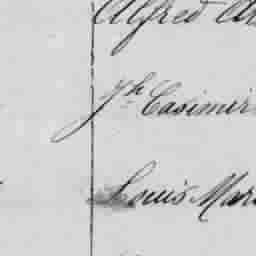 Alfred
Jh. Casimir
Louis Mar